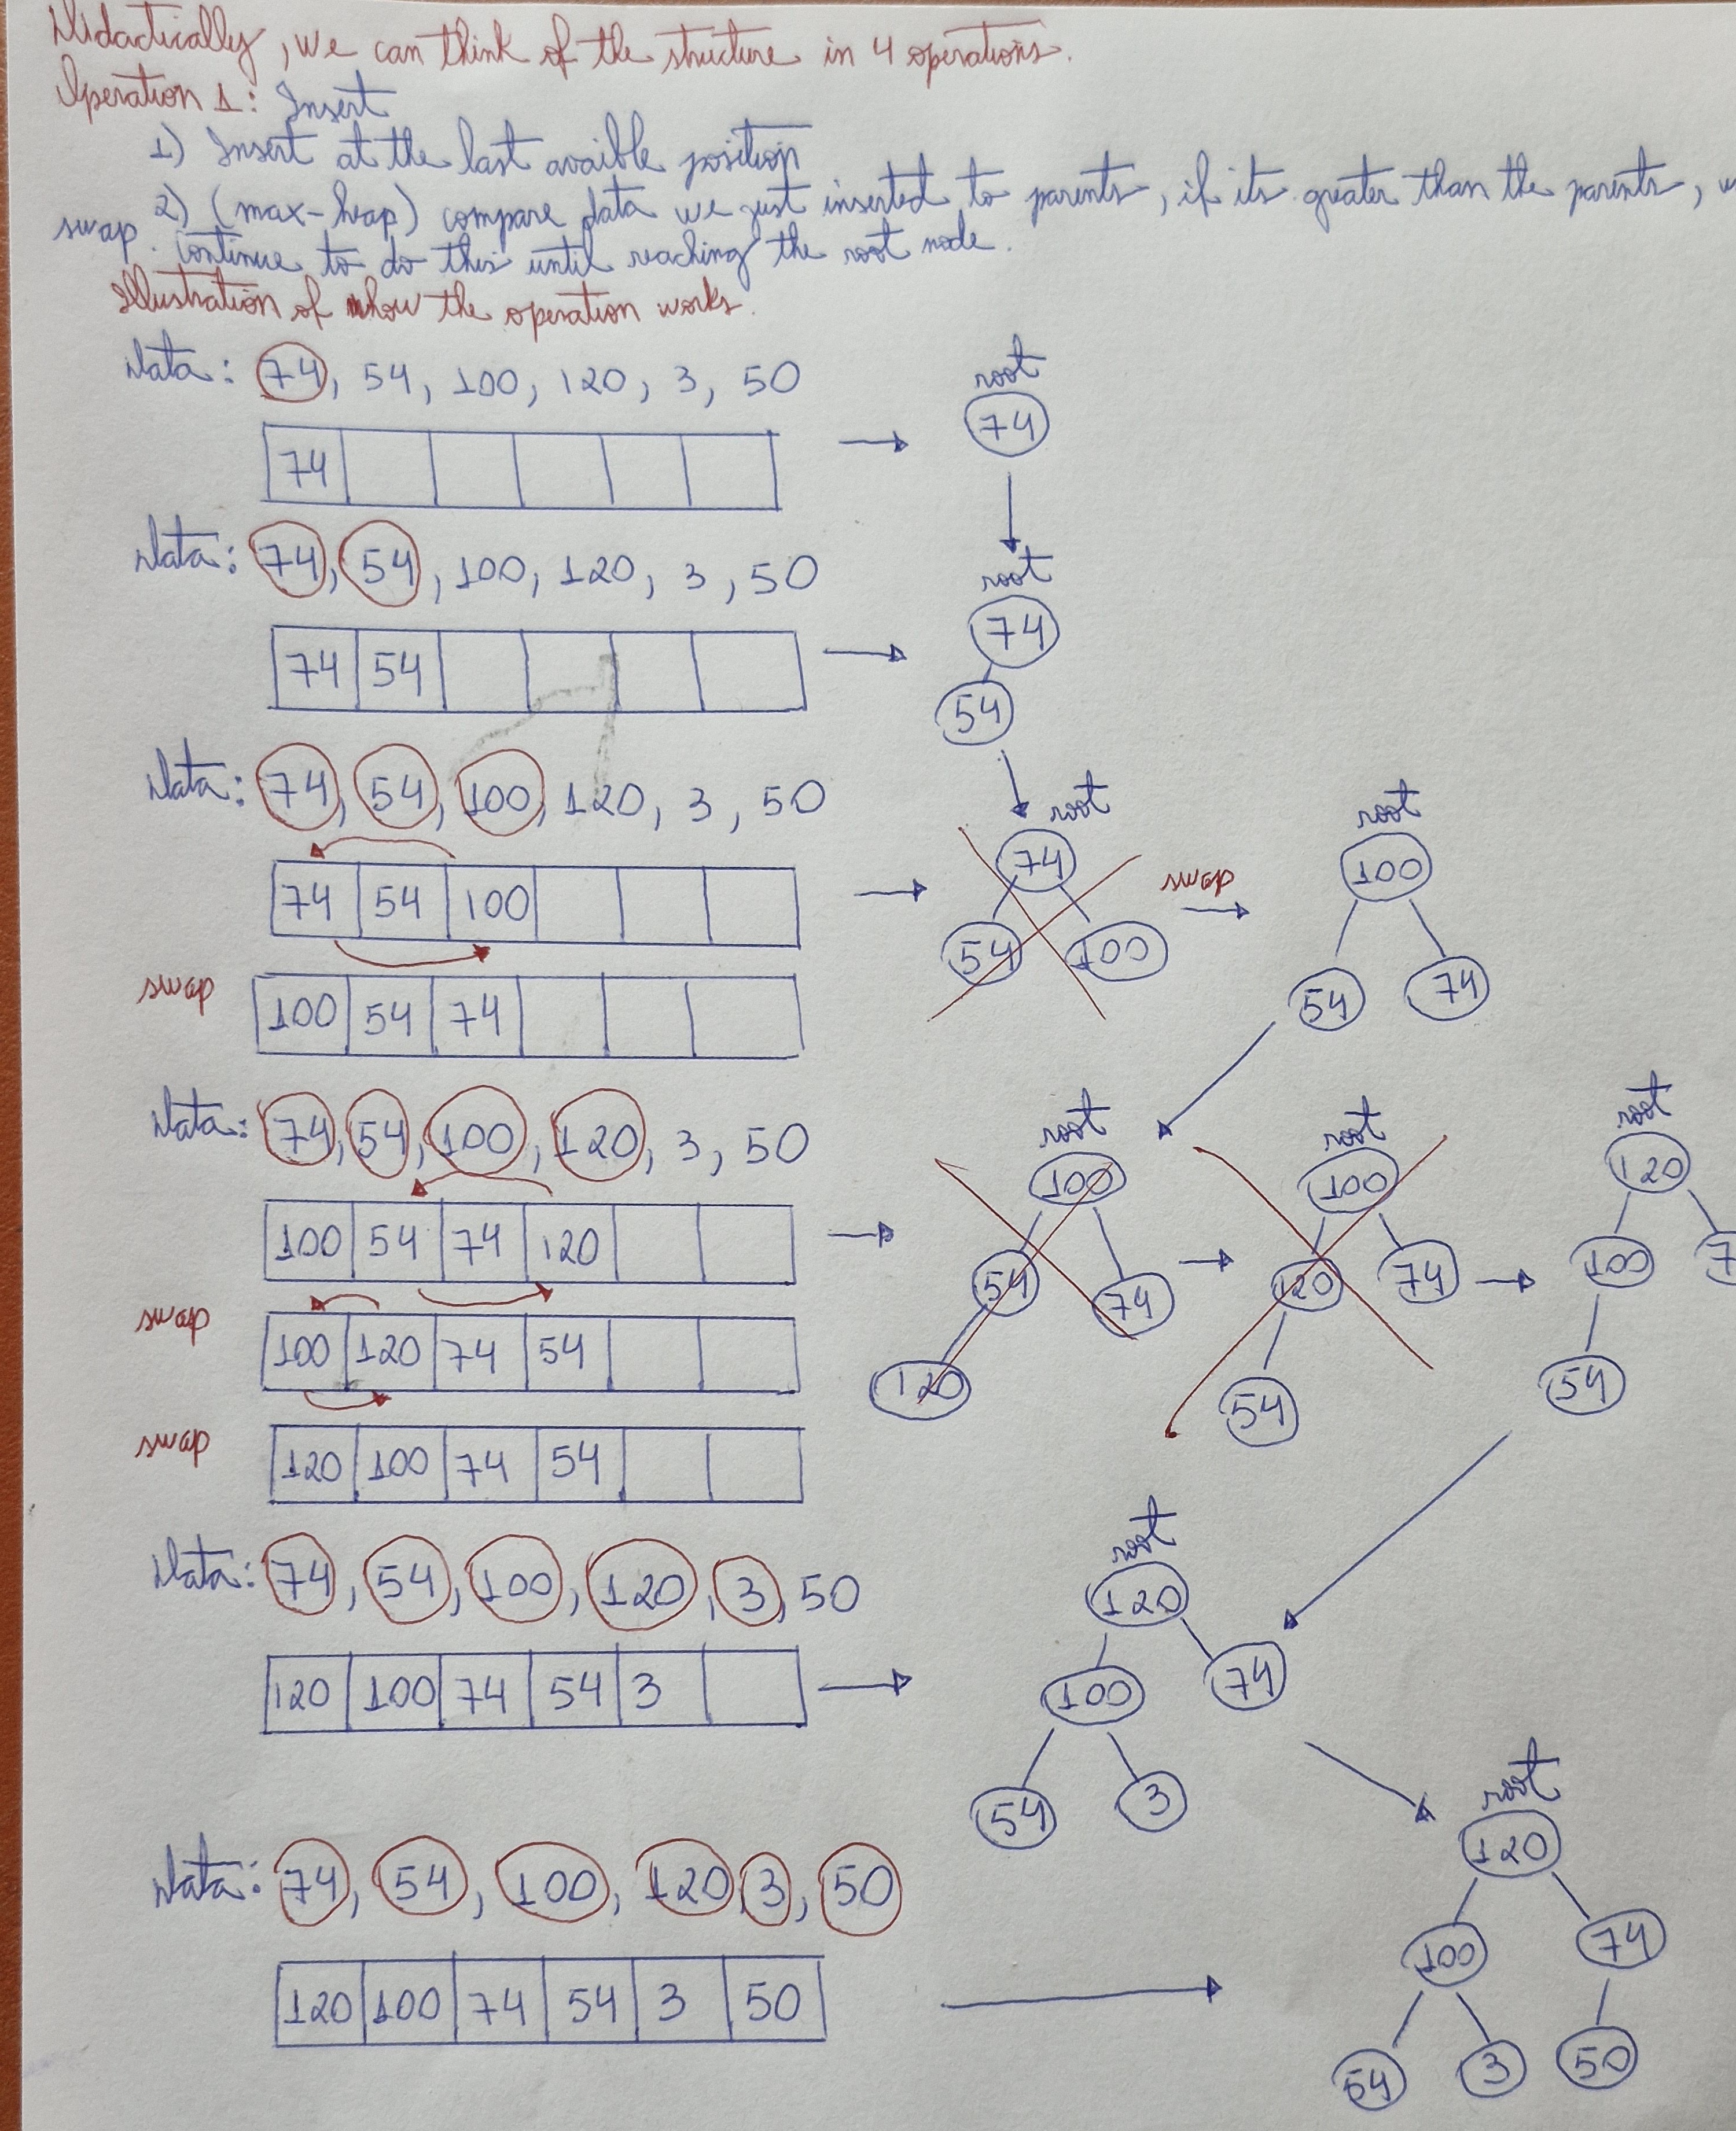 Didactically, we can think of the structure in 4 operations.
Operation 1: Insert
1) Insert at the last avaible position
2) (max-heap) compare data we just inserted to parents, if its greater than the parents,
swap. Continue to do this until reaching the root node.
Illustration of how the operation works.
Data: 74, 54, 100, 120, 3, 50
root
74
74
Data: 74, 54, 100, 120, 3, 50
root
74
54
74 54
Data: 74, 54, 100, 120, 3, 50
root
74
54 100
swap
root
100
54 74
74 54 100
swap
100 54 74
Data: 74, 54, 100, 120, 3, 50
root
100
54 74
120
root
100
120 74
54
root
120
100
54
100 54 74 120
swap
100 120 74 54
swap
120 100 74 54
Data: 74, 54, 100, 120, 3, 50
root
120
100 74
54 3
120 100 74 54 3
Data: 74, 54, 100, 120, 3, 50
root
120
100 74
54 3 50
120 100 74 54 3 50